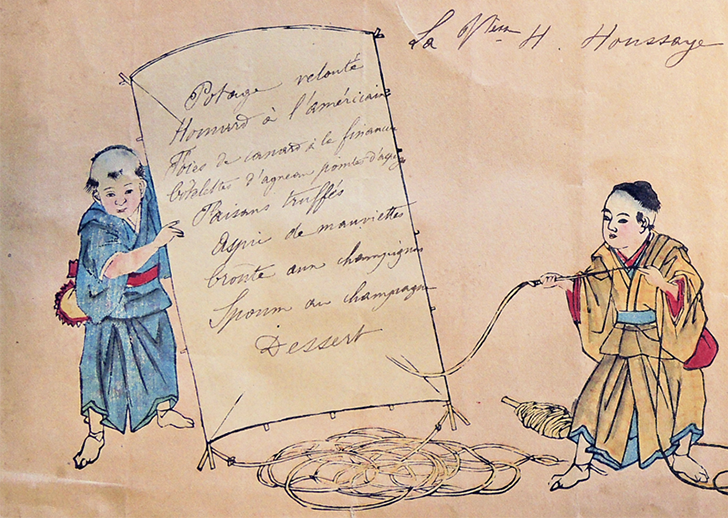 La Vtem H. Houssaye
Potage velouté
Homard à l'américaine
Foies de canard à la financière
Côtelettes d'agneau pointes d'asp
Faisans truffés
Aspic de mauviettes
Croûte aux champignons
Spoum au champagne
Dessert